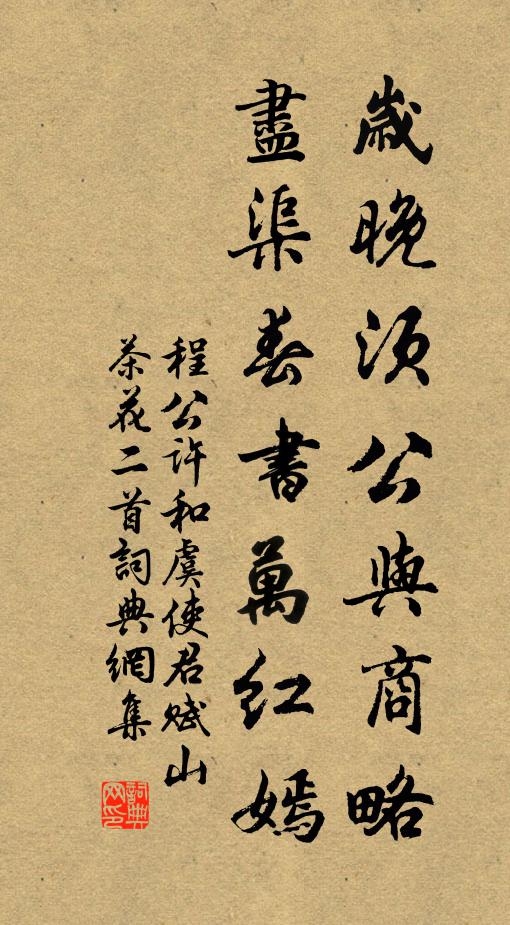 歲晚須公與商略
盡渠春書萬紅嫣
程公許和虞使君賦山
茶花二首詞典網集
詞典
网印